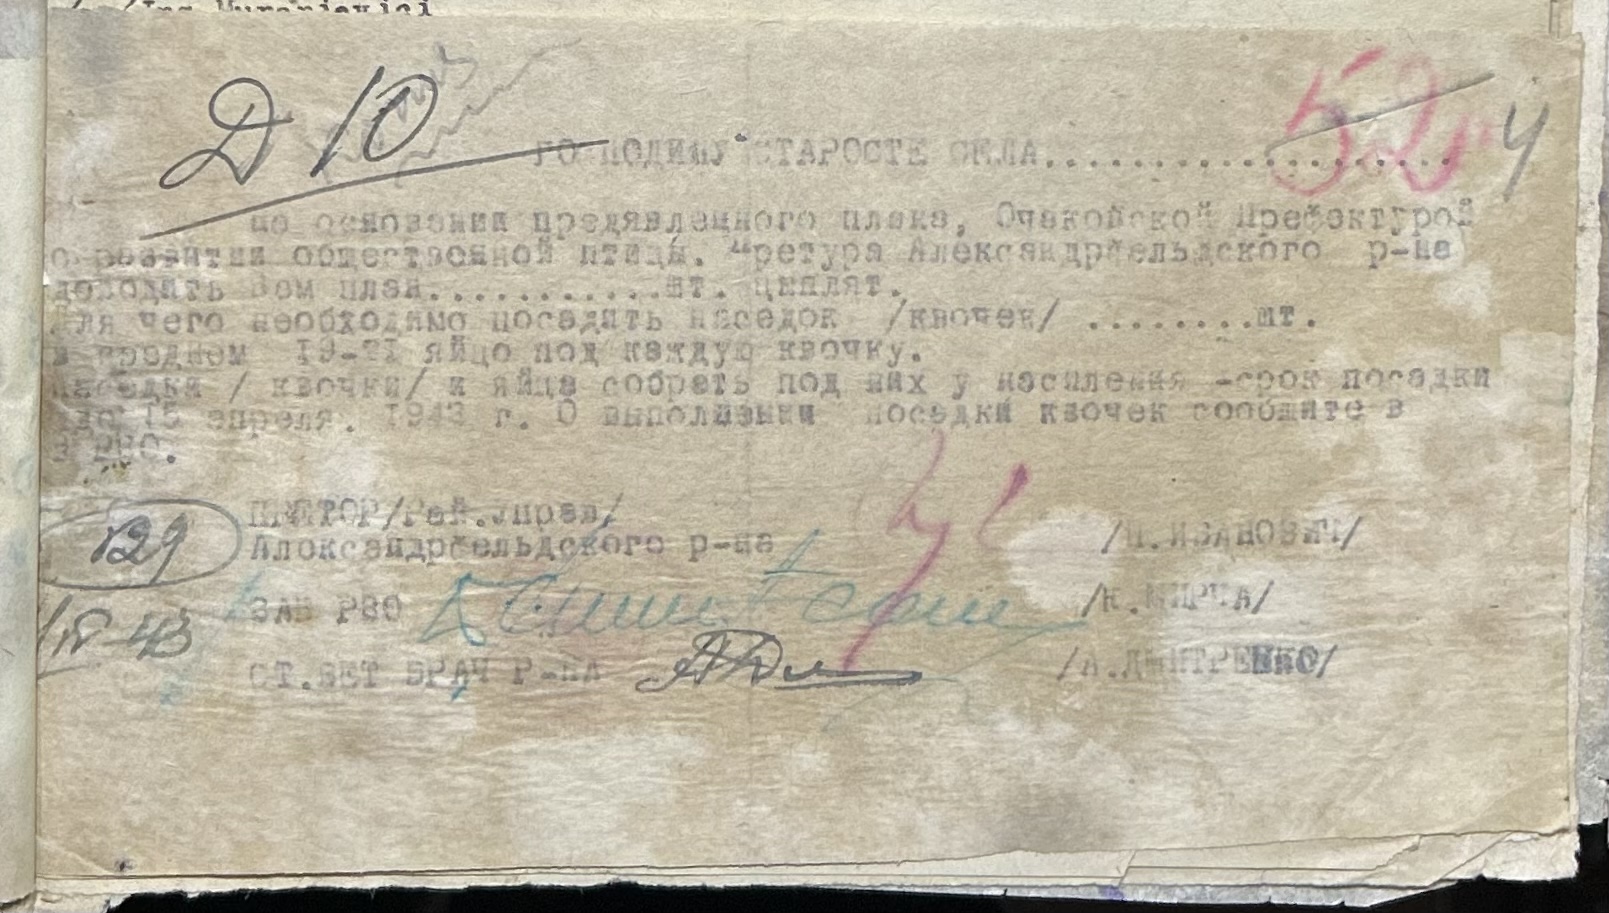 Д 10
52 4
ГОСПОДИНУ СТАРОСТЕ СЕЛА....................
на основании предявленного плана, Очаковской Префектурой
о развитии общественной птицы. Претура Александрфельдского р-на
доводить Вам план............шт. цыплят.
Для чего необходимо посадить наседок /квочек/ ........шт.
в среднем 19-21 яйцо под каждую квочку.
Наседки / квочки/ и яйца собрать под них у насиления -срок посадки
до 15 апреля. 1943 г. О выполнении посадки квочек сообщите в
в РЗО.
ПРЕТОР/Рай.Управ/
Александрфельдского р-на /П.ИВАНОВИЧ/
129
ЗАВ РЗО /К.МИРЧА/
43
СТ.ВЕТ ВРАЧ Р-НА /А.ДМИТРЕНКО/